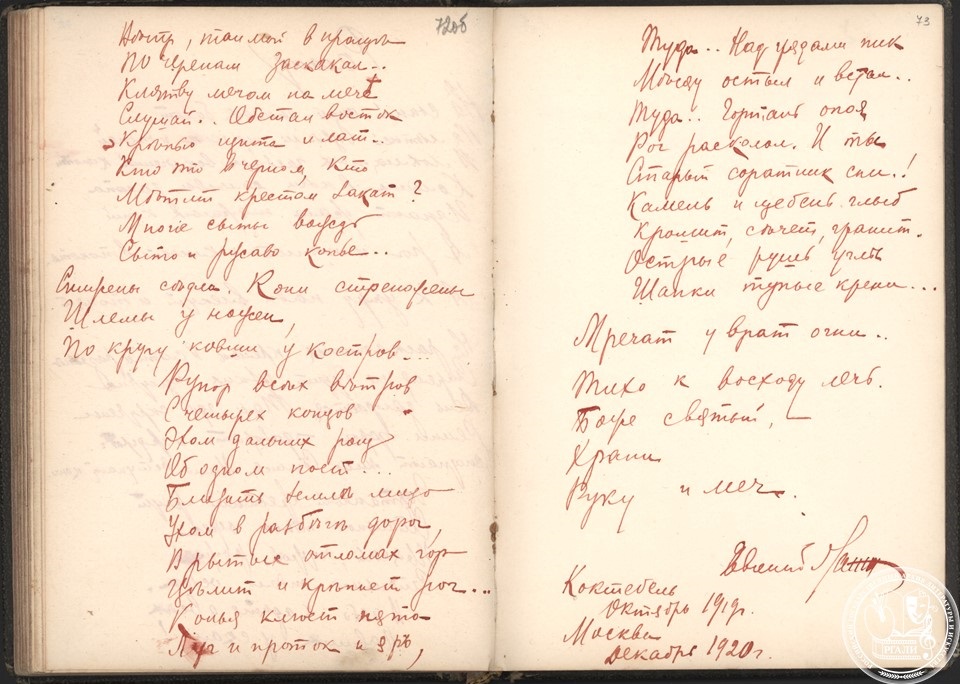 72об
по черепам Заскакал..
Клятву мечом на мече
Слушай.. Обстал восток
Кровью щита и лат..
Кто это в черном, Кто
Мѣтит крестом закат?
Многие сыты вождь
Сыто и ржаво копье..
Смирены сѣдла. Кони стреножены
Шлемы у ножен,
По кругу ковши у костров...
Рупор всѣх вѣтров
С четырех концов
Эхом дальних рощ
Об одном поет...
Близить земли лицо
Ухом в разбѣгѣ дорог,
В рытые отломах гор
Цѣлит и крѣпнет рог...
Копья клюет пята
Луг и проток и яр,
73
Туда.. Над грядами пик
Мѣсяц остыл и встал..
Туда.. Гортань опоя
Рог расколол. И ты
Старый соратник спи..!
Камень и щебень глыб
Крошит, сѣчет, гранит.
Острые рушь углы
Шапки тупые крени...
Мречат у врат огни..
Тихо к восходу лечь.
Боже святый, —
Храни
Руку и меч.
Евгений Ланн
Коктебель
Октябрь 1919г.
Москва
Декабрь 1920г.
РГАЛИ